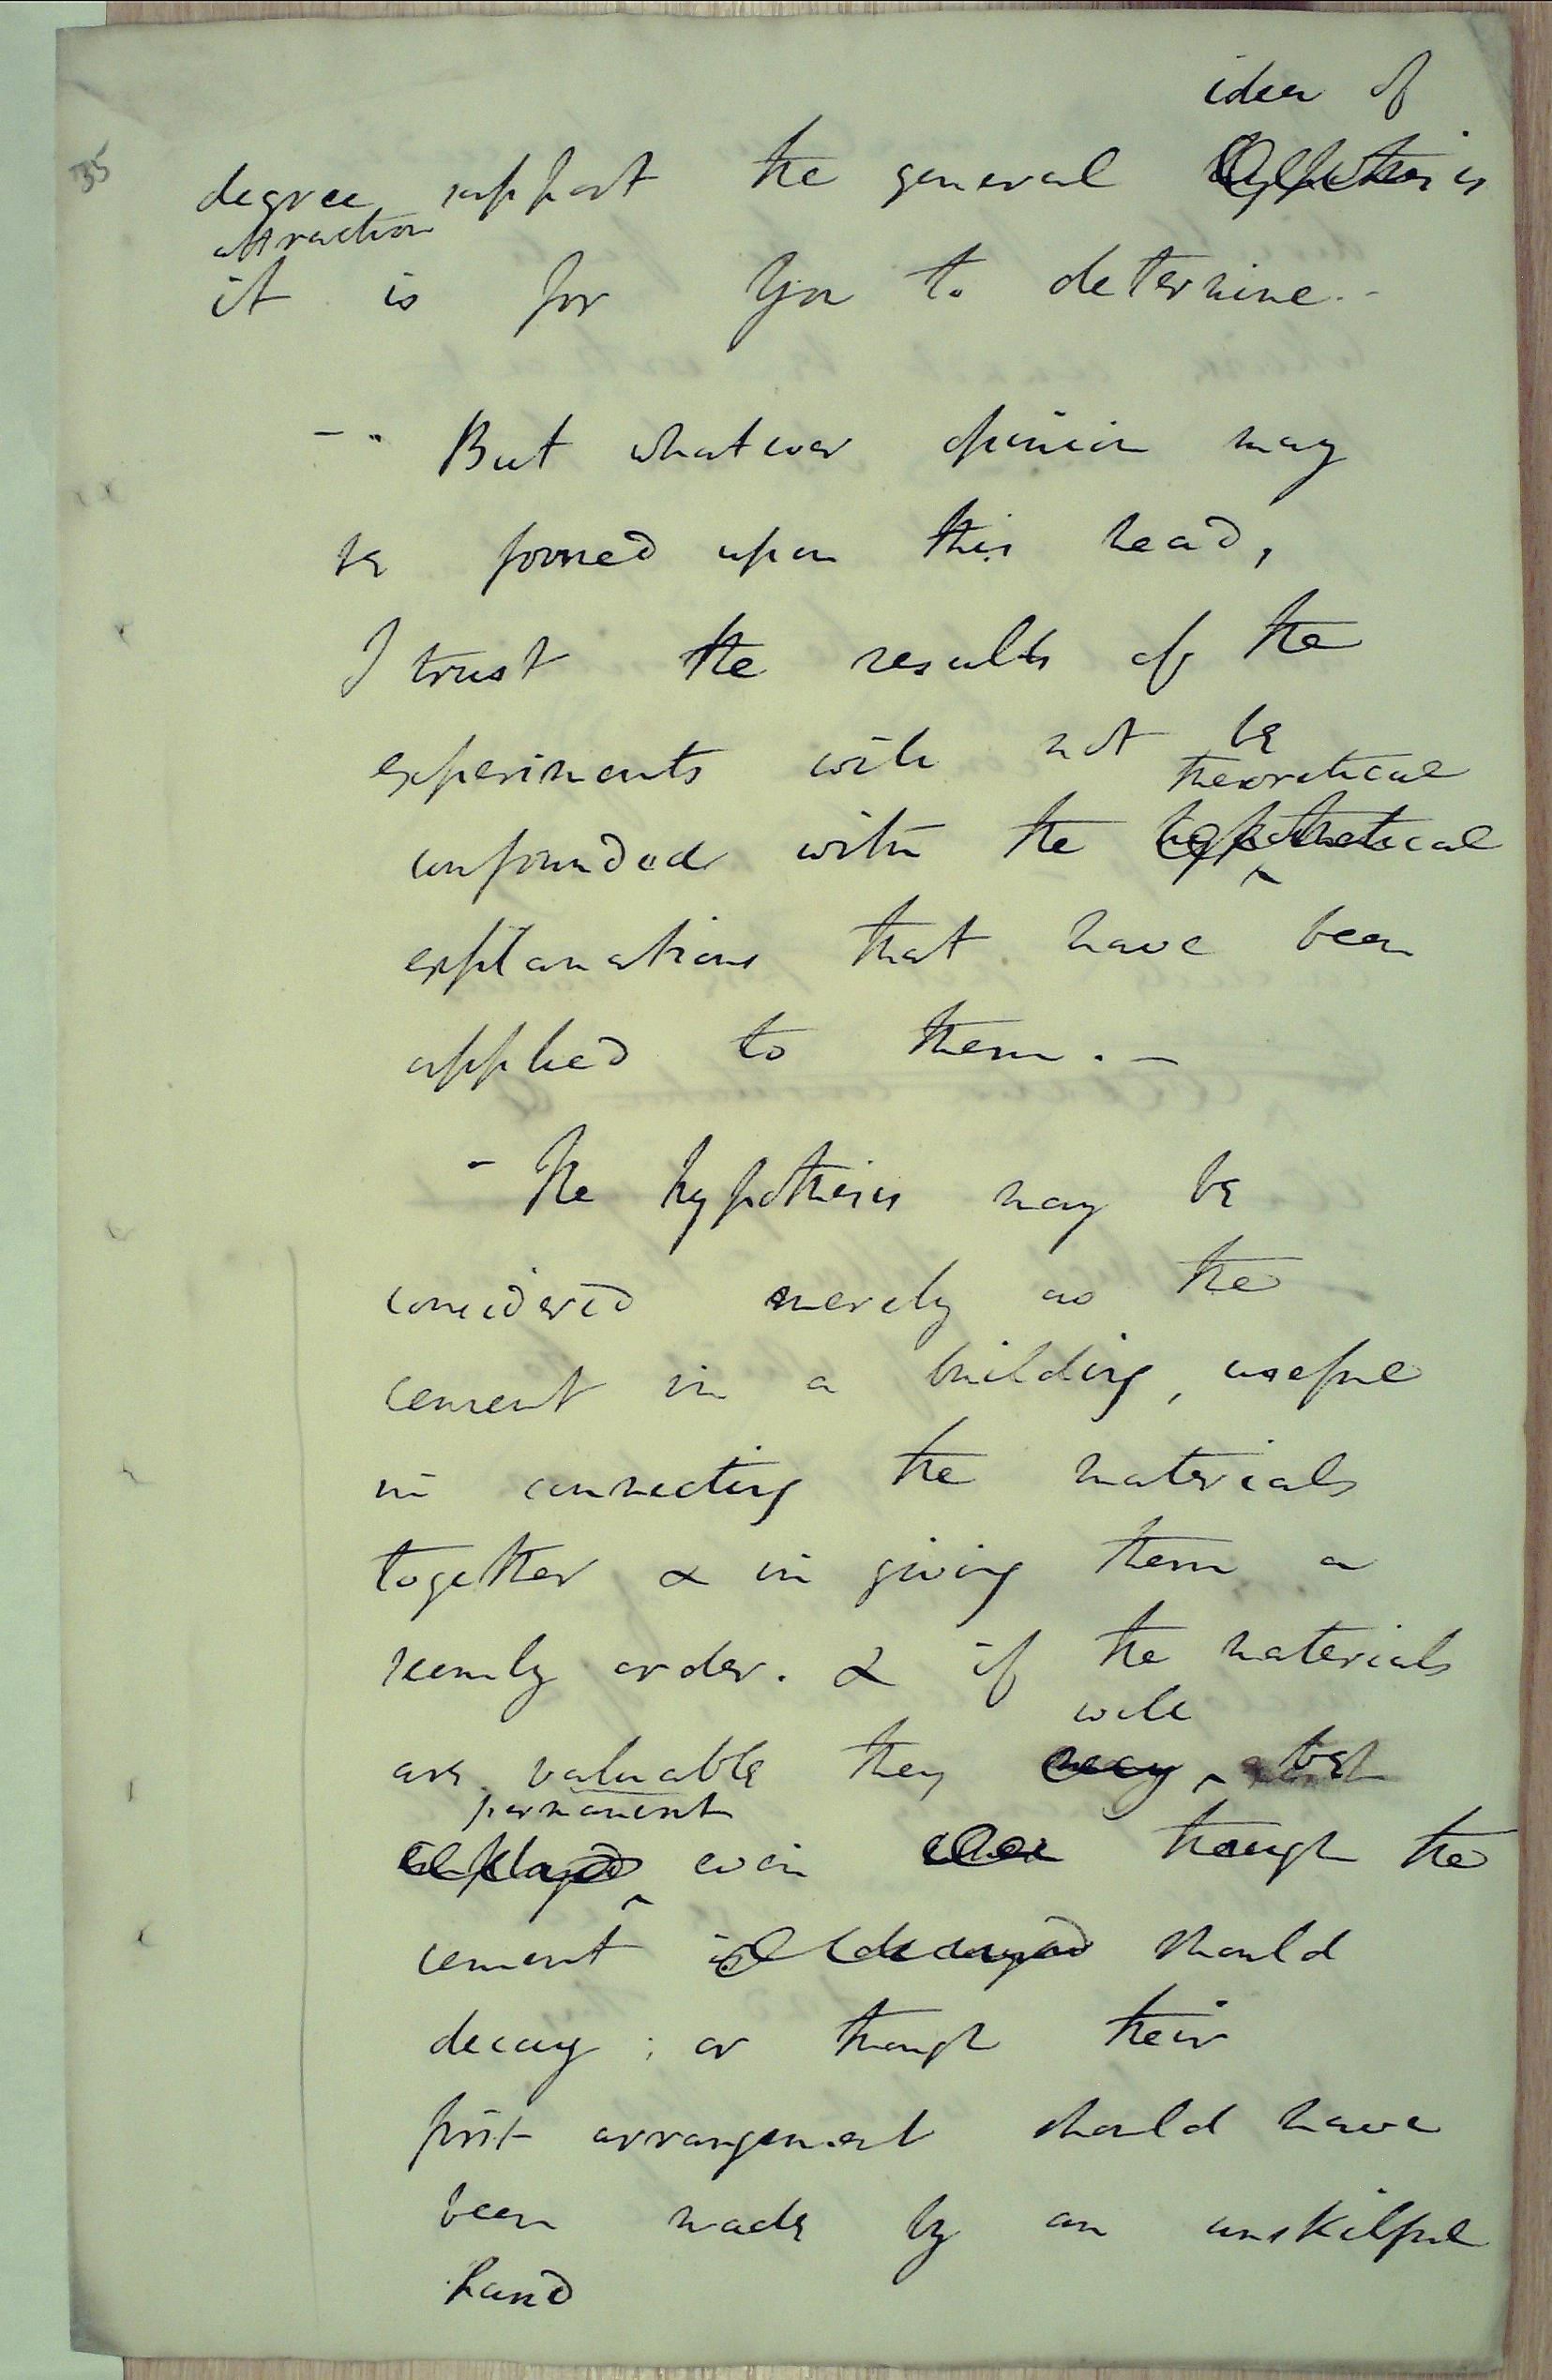 35
idea of
degree support the general Hypothesis
attraction
it is for You to determine. -
- " But whatever opinion may
be formed upon this head,
I trust the results of the
experiments will not be
theoretical
confounded with the hypothetical
explanations that have been
applied to them. -
- The hypothesis may be
considered merely as the
cement in a building, useful
in connecting the materials
together & in giving them a
seemly order. & if the materials
will
are valuable they may be
permanent
employed even when though the
cement is decayed should
decay; or though their
first arrangement should have
been made by an unskilful
hand